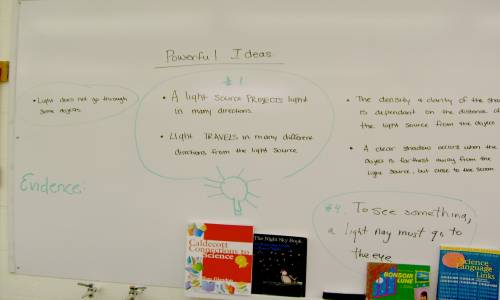 Powerful Ideas
• Light does not go through
some objects.
#1
• A light source PROJECTS light
in many directions.
• Light TRAVELS in many different
directions from the light source
• The density & clarity of the
is dependant on the distance of
the light source from the object
• A clear shadow occurs when the
object is farthest away from the
light source, but close to the screen
Evidence:
#4. To see something,
a light ray must go to
the eye
Caldecott
Connections to
Science
The Night Sky Book
BONSOIR
LUNE
Science
Language
Links